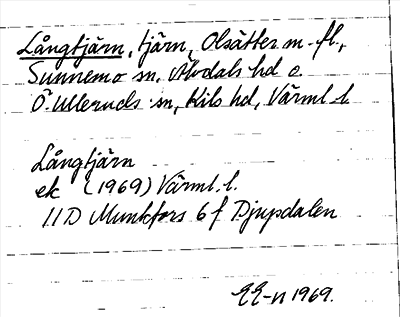 Långtjärn, tjärn, Olsätter m. fl.,
Sunnemo sn, Älvdals hd o.
Ö. Ulleruds sn, Kils hd, Värml. l.
Långtjärn
ek (1969) Värml. l.
11D Munkfors 6 f Djupdalen
EE-n 1969.